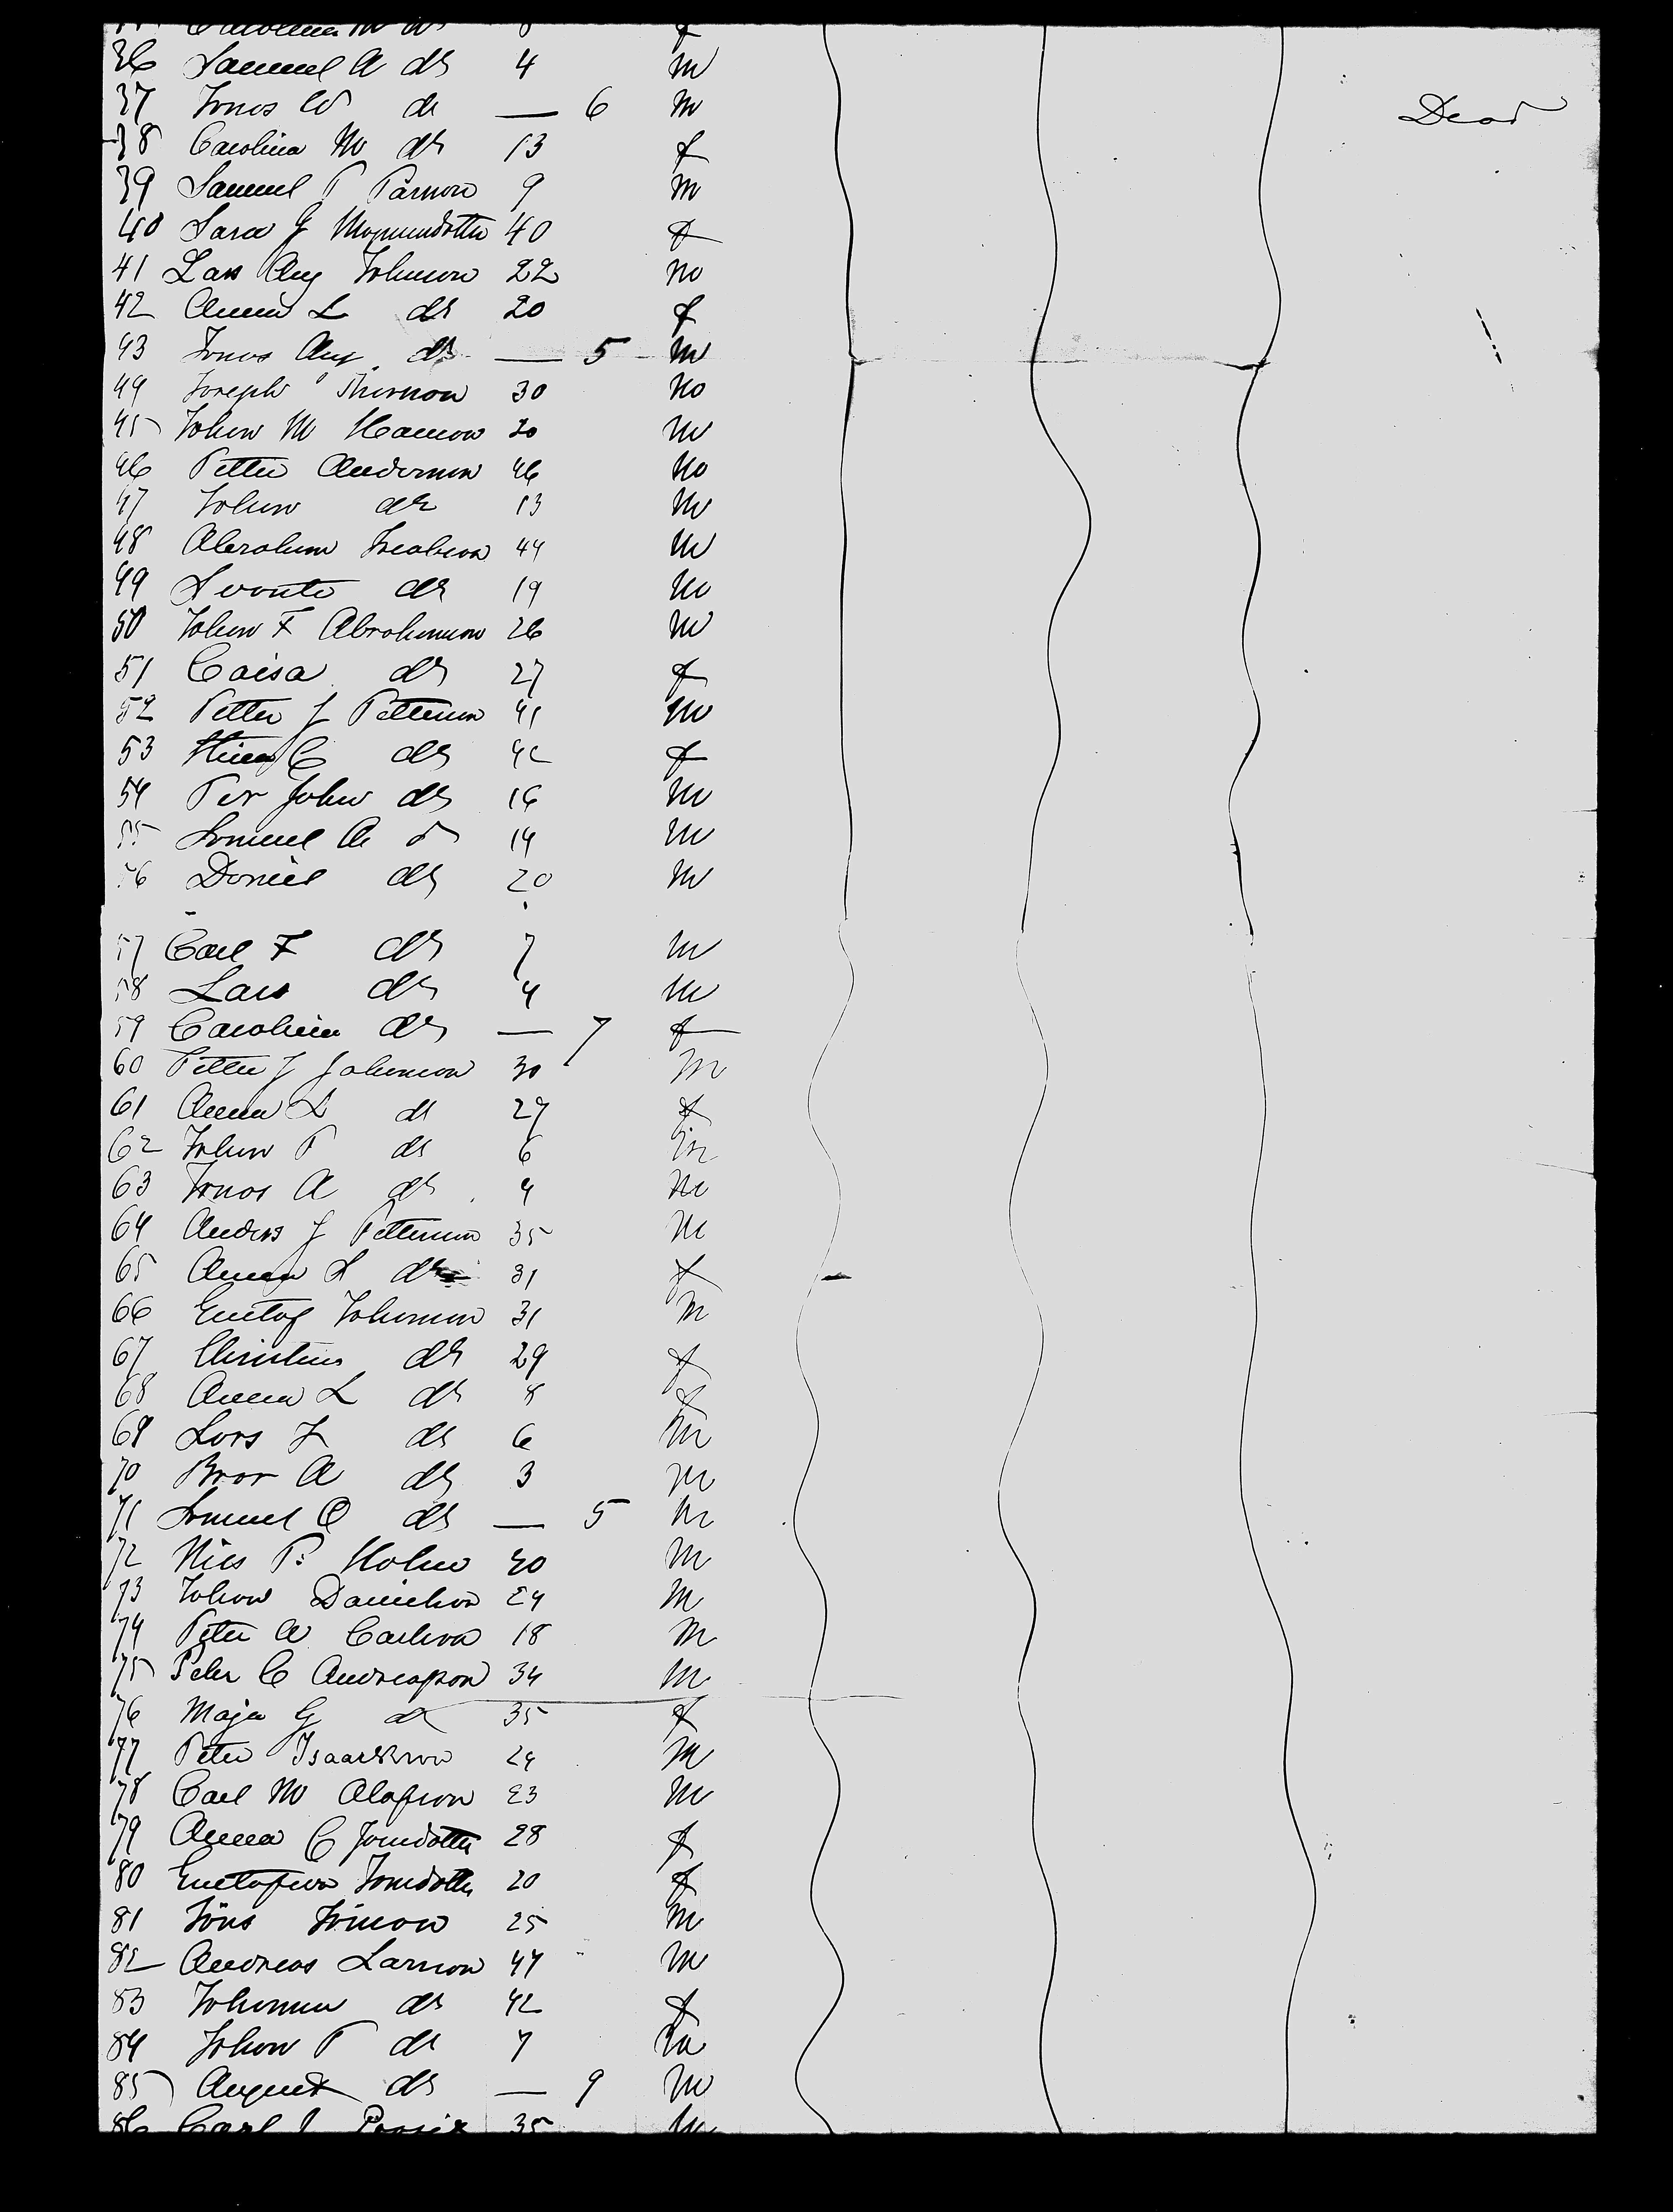 36 Samuel A do 4 m
37 Jonas W do — 6 m Dead
38 Carolina M do 13 f
39 Samuel P Parson 9 m
40 Sara G Magnusdotter 40 f
41 Lars Aug Johnson 22 m
42 Anna L do 20 f
43 Jonas Aug do — 5 m
44 Joseph 30 m
45 John M Hanson 30 m
46 Petter Anderson 46 m
47 John do 13 m
48 Abraham Jacobson 44 m
49 Svante do 19 m
50 John F Abrahamson 26 m
51 Caisa do 27 f
52 Petter J Petterson 41 m
53 Stina C do 42 f
54 Per John do 16 m
55 Samuel A do 14 m
56 Daniel do 20 m
57 Carl F do 7 m
58 Lars do 4 m
59 Carolina do — 7 f
60 Petter J Johanson 30 m
61 Anna L do 27 f
62 John P do 6 m
63 Jonas A do 4 m
64 Anders J Petterson 35 m
65 Anna L do 31 f
66 Gustaf Johanson 31 m
67 Christina do 29 f
68 Anna L do 8 f
69 Lars J do 6 m
70 Bror A do 3 m
71 Samuel O do — 5 m
72 Nils P. Holm 30 m
73 Johan Danielson 24 m
74 Peter A Carlson 18 m
75 Peter C Andreasson 34 m
76 Maja G do 35 f
77 Peter Isaackson 24 m
78 Carl M Olafson 23 m
79 Anna C Jonsdotter 28 f
80 Gustafva Jonsdotter 20 f
81 Jöns Jönson 25 m
82 Andreas Larson 47 m
83 Johanna do 42 f
84 Johan P do 7 m
85 August do — 9 m
86 Carl 35 m